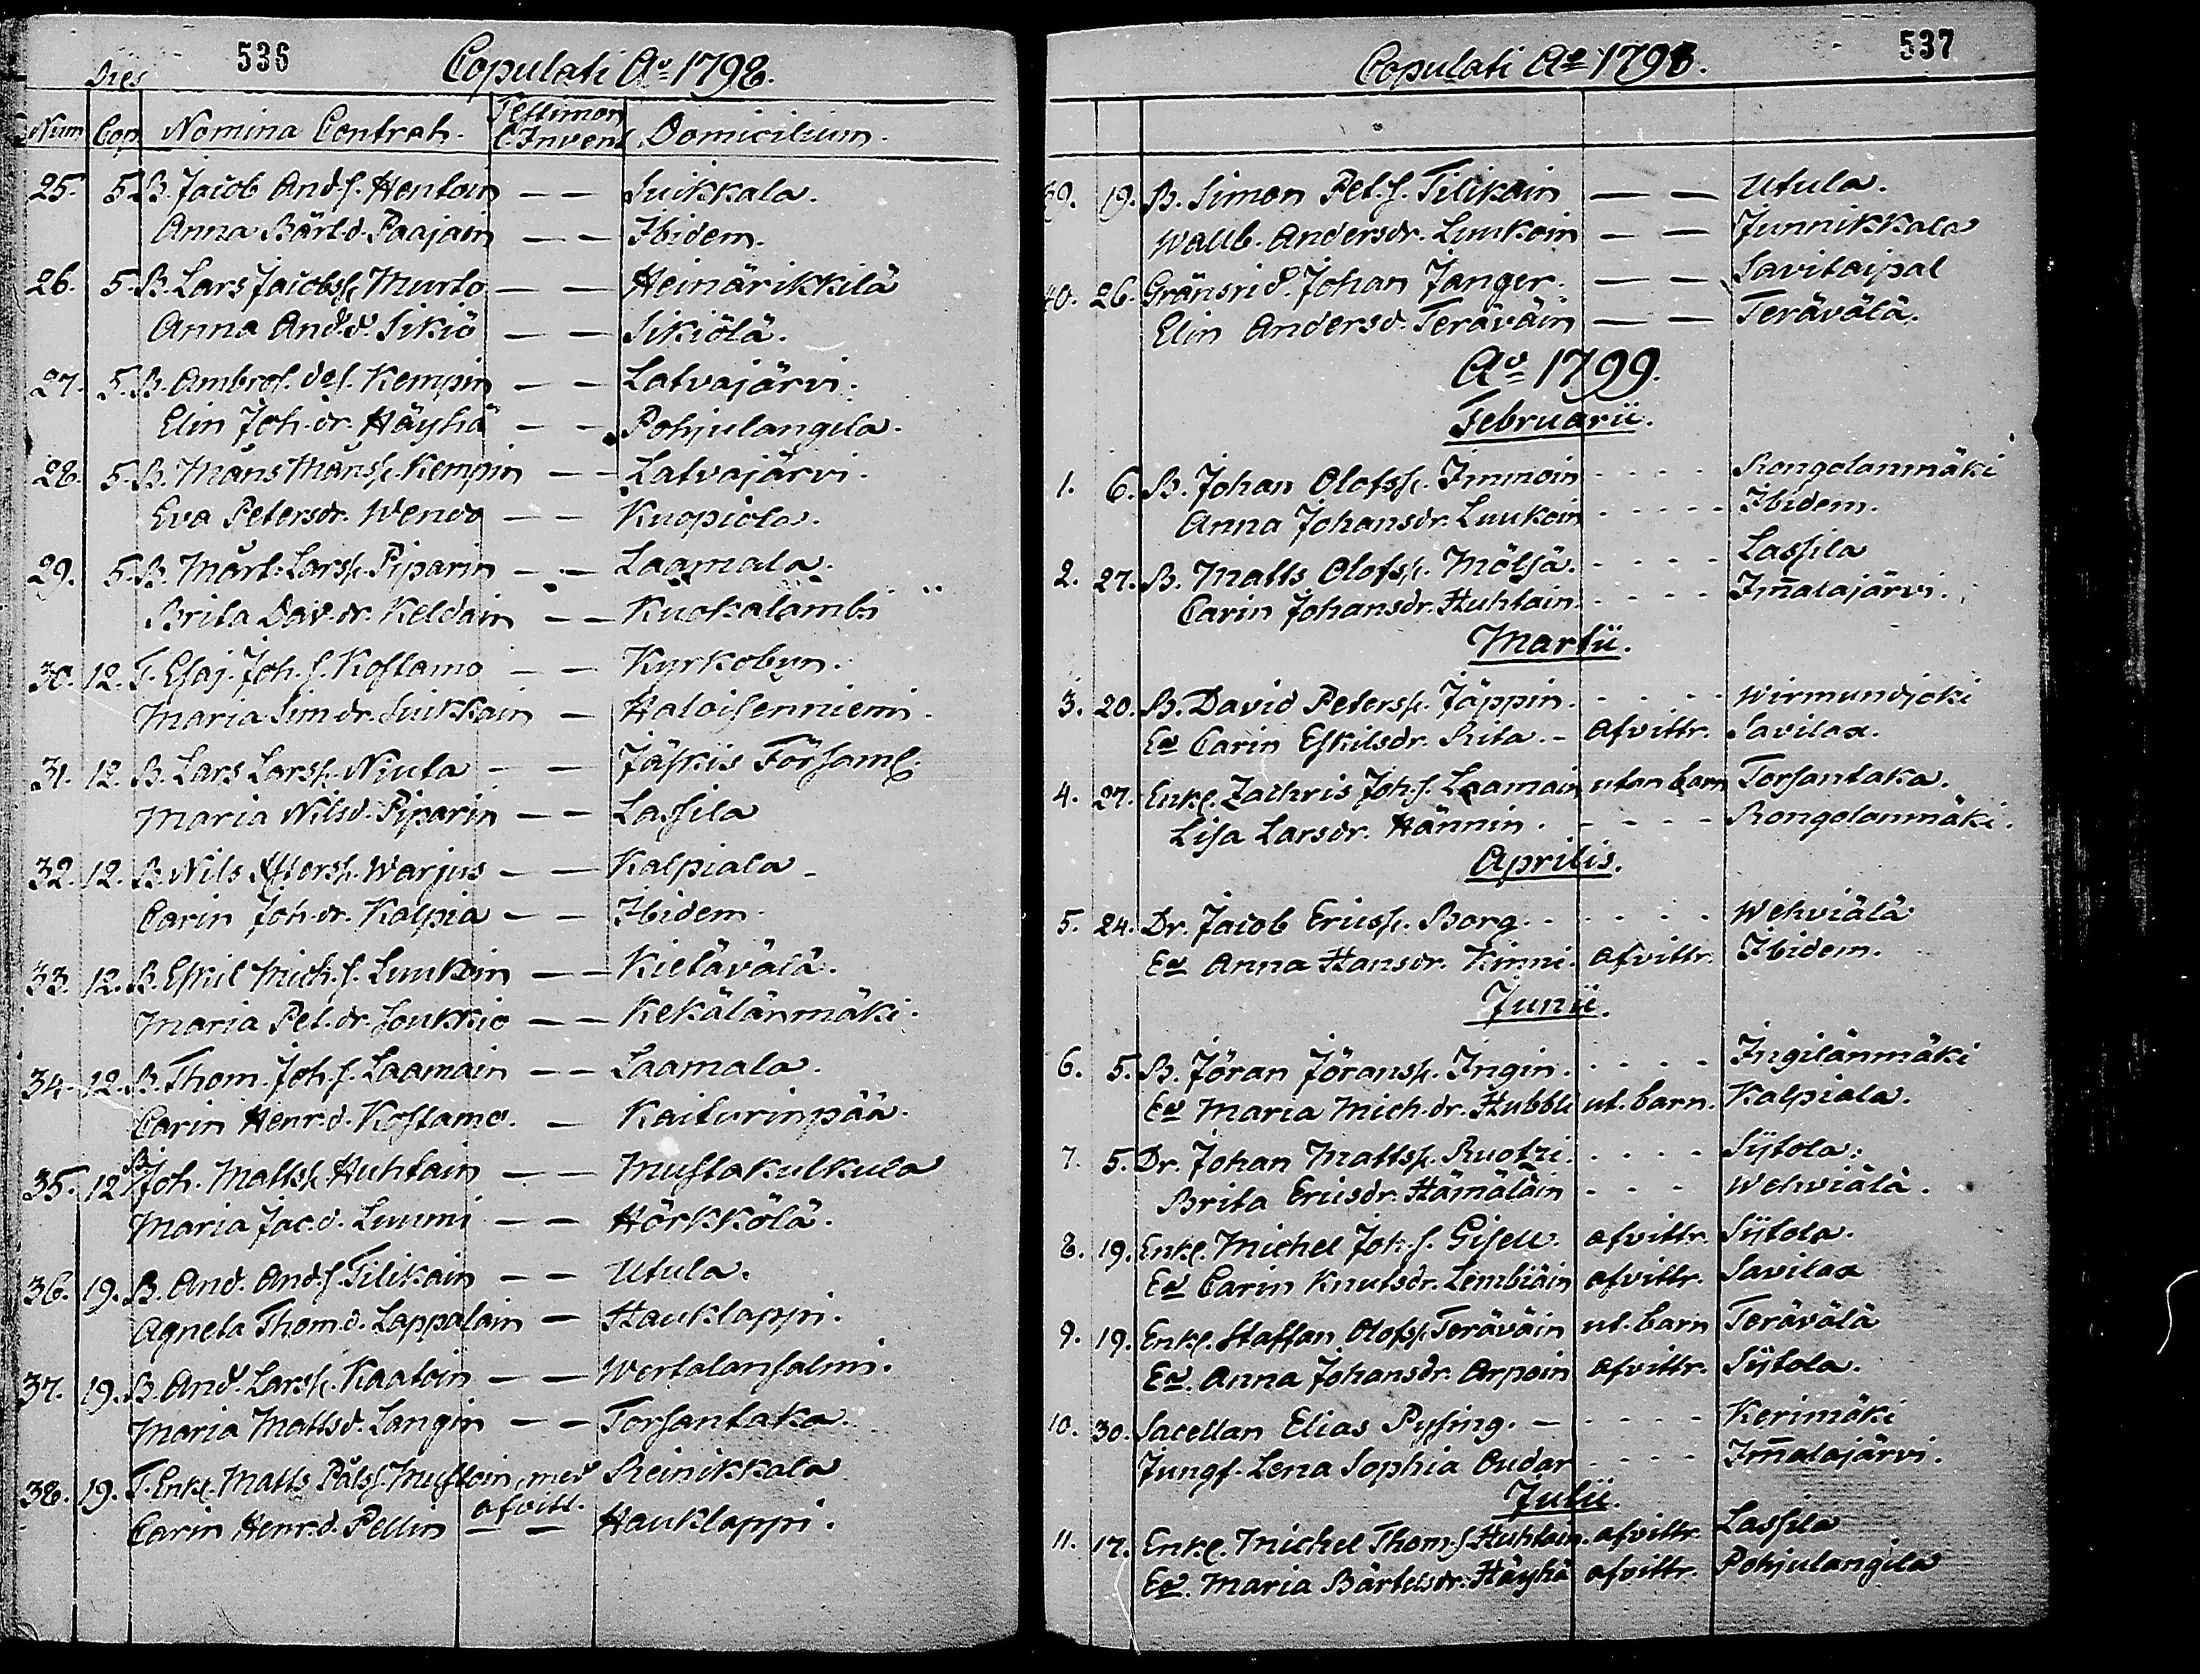 536
Copulati Ao 1798.
Dies
Num Cop Nomina Contrah. Testimon C.Invent Domicilium.
25. 5. B. Jacob And.s. Hentoin — — Suikkala.
Anna Bärt.d. Paajain — — Ibidem.
26. 5. B. Lars Jacobss. Murto — — Heinärikkilä
Anna And.d. Sikiö — — Sikiölä.
27. 5. B. Ambros. Kempin — — Latvajärvi.
Elin Joh.dr. Häyhä — — Pohjulangila.
28. 5. B. Måns Månss. Kempin — — Latvajärvi.
Eva Petersdr. Wendo — — Kuopiola.
29. 5. B. Mårt. Larss. Piparin — — Laamala.
Brita Dav.dr. Keldain — — Kuokalambi
30. 12. T. Esaj. Joh.s. Kostamo — — Kyrkobyn.
Maria Sim.dr. Suikkain — Haloisenniemi.
31. 12. B. Lars Larss. Niuta — — Jäskis Församl.
Maria Nilsd. Piparin — — Lassila
32. 12. B. Nils Warjus — — Kalpiala
Carin Joh.dr. Kalpia — — Ibidem.
33. 12. B. Eskil Mich.s. Luukoin — — Kietävälä.
Maria Pet.dr. Soukkio — — Kekälänmäki.
34. 12. B. Thom. Joh.s. Laamain — — Laamala.
Carin Henr.d. Kostamo. — Kaiturinpää.
35. 12 B. Joh. Matss. Huhtain — — Mustakulkula
Maria Jac.d. Luumi — — Hörkkölä.
36. 19. B. And. And.s. Tilikain — — Utula.
Agneta Thom.d. Lappalain — Hauklappi.
37. 19. B. And. Larss. Kaatoin — — Wertalansalmi.
Maria Mattsd. Langin — — Torsantaka.
38. 19. T. Enkl. Matts Pålss. Mustoin, med Reinikkala
afvitt.
Carin Henr.d. Pellin — — Hauklappi.
537
Copulati Ao 1798.
39. 19. B. Simon Pet.s. Tilikain — — Utula.
Wallb. Andersdr. Luukoin — — Junnikkala
40. 26. Gränsrid. Johan Janger. — — Savitaipal
Elin Andersd. Teräväin — — Terävälä.
Ao 1799.
Februarii.
1. 6. B. Johan Olofss. Immoin - - - - Rongolanmäki
Anna Johansdr. Luukoin - - - - - Ibidem.
2. 27. B. Matts Olofss. Mölsä. - - - - Lassila
Carin Johansdr. Huhtain. - - - - Im̄alajärvi.
Martii.
3. 20. B. David Peterss. Jäppin. - - - - Wirmundjoki
Ea Carin Eskilsdr. Rita. - afvittr. Savilax.
4. 27. Enkl. Zachris Joh.s. Laamain utan barn Torsantaka.
Lisa Larsdr. Hännin. - - - - Rongolanmäki.
Aprilis.
5. 24. Dr. Jacob Ericss. Borg. - - - - Wehviälä
Ea Anna Hansdr. Kinni. afvittr. Ibidem.
Junii.
6. 5. B. Jöran Jöranss. Ingin. - - - - Ingilänmäki
Ea Maria Mich.dr. Hubbli ut. barn. Kalpiala.
7. 5. Dr. Johan Mattss. Ruotzi. - - - - Sijtola.
Brita Ericsdr. Hämäläin - - - Wehviälä.
8. 19. Enkl. Michel Joh.s. Gisell. afvittr. Sijtola.
Ea Carin Knutsdr. Lembiäin afvittr. Savilax
9. 19. Enkl. Staffan Olofss. Teräväin ut. barn Terävälä
Ea. Anna Johansdr. Arpoin afvittr. Sijtola.
10. 30. Sacellan Elias Pyssing. - - - - - Kerimäki
Jungf. Lena Sophia Oudar - - - - Im̄alajärvi.
Julii.
11. 17. Enkl. Michel Thom.s. Huhtain. afvittr. Lassila
Ea. Maria Bärtelsdr. Häyhä afvittr. Pohjulangila